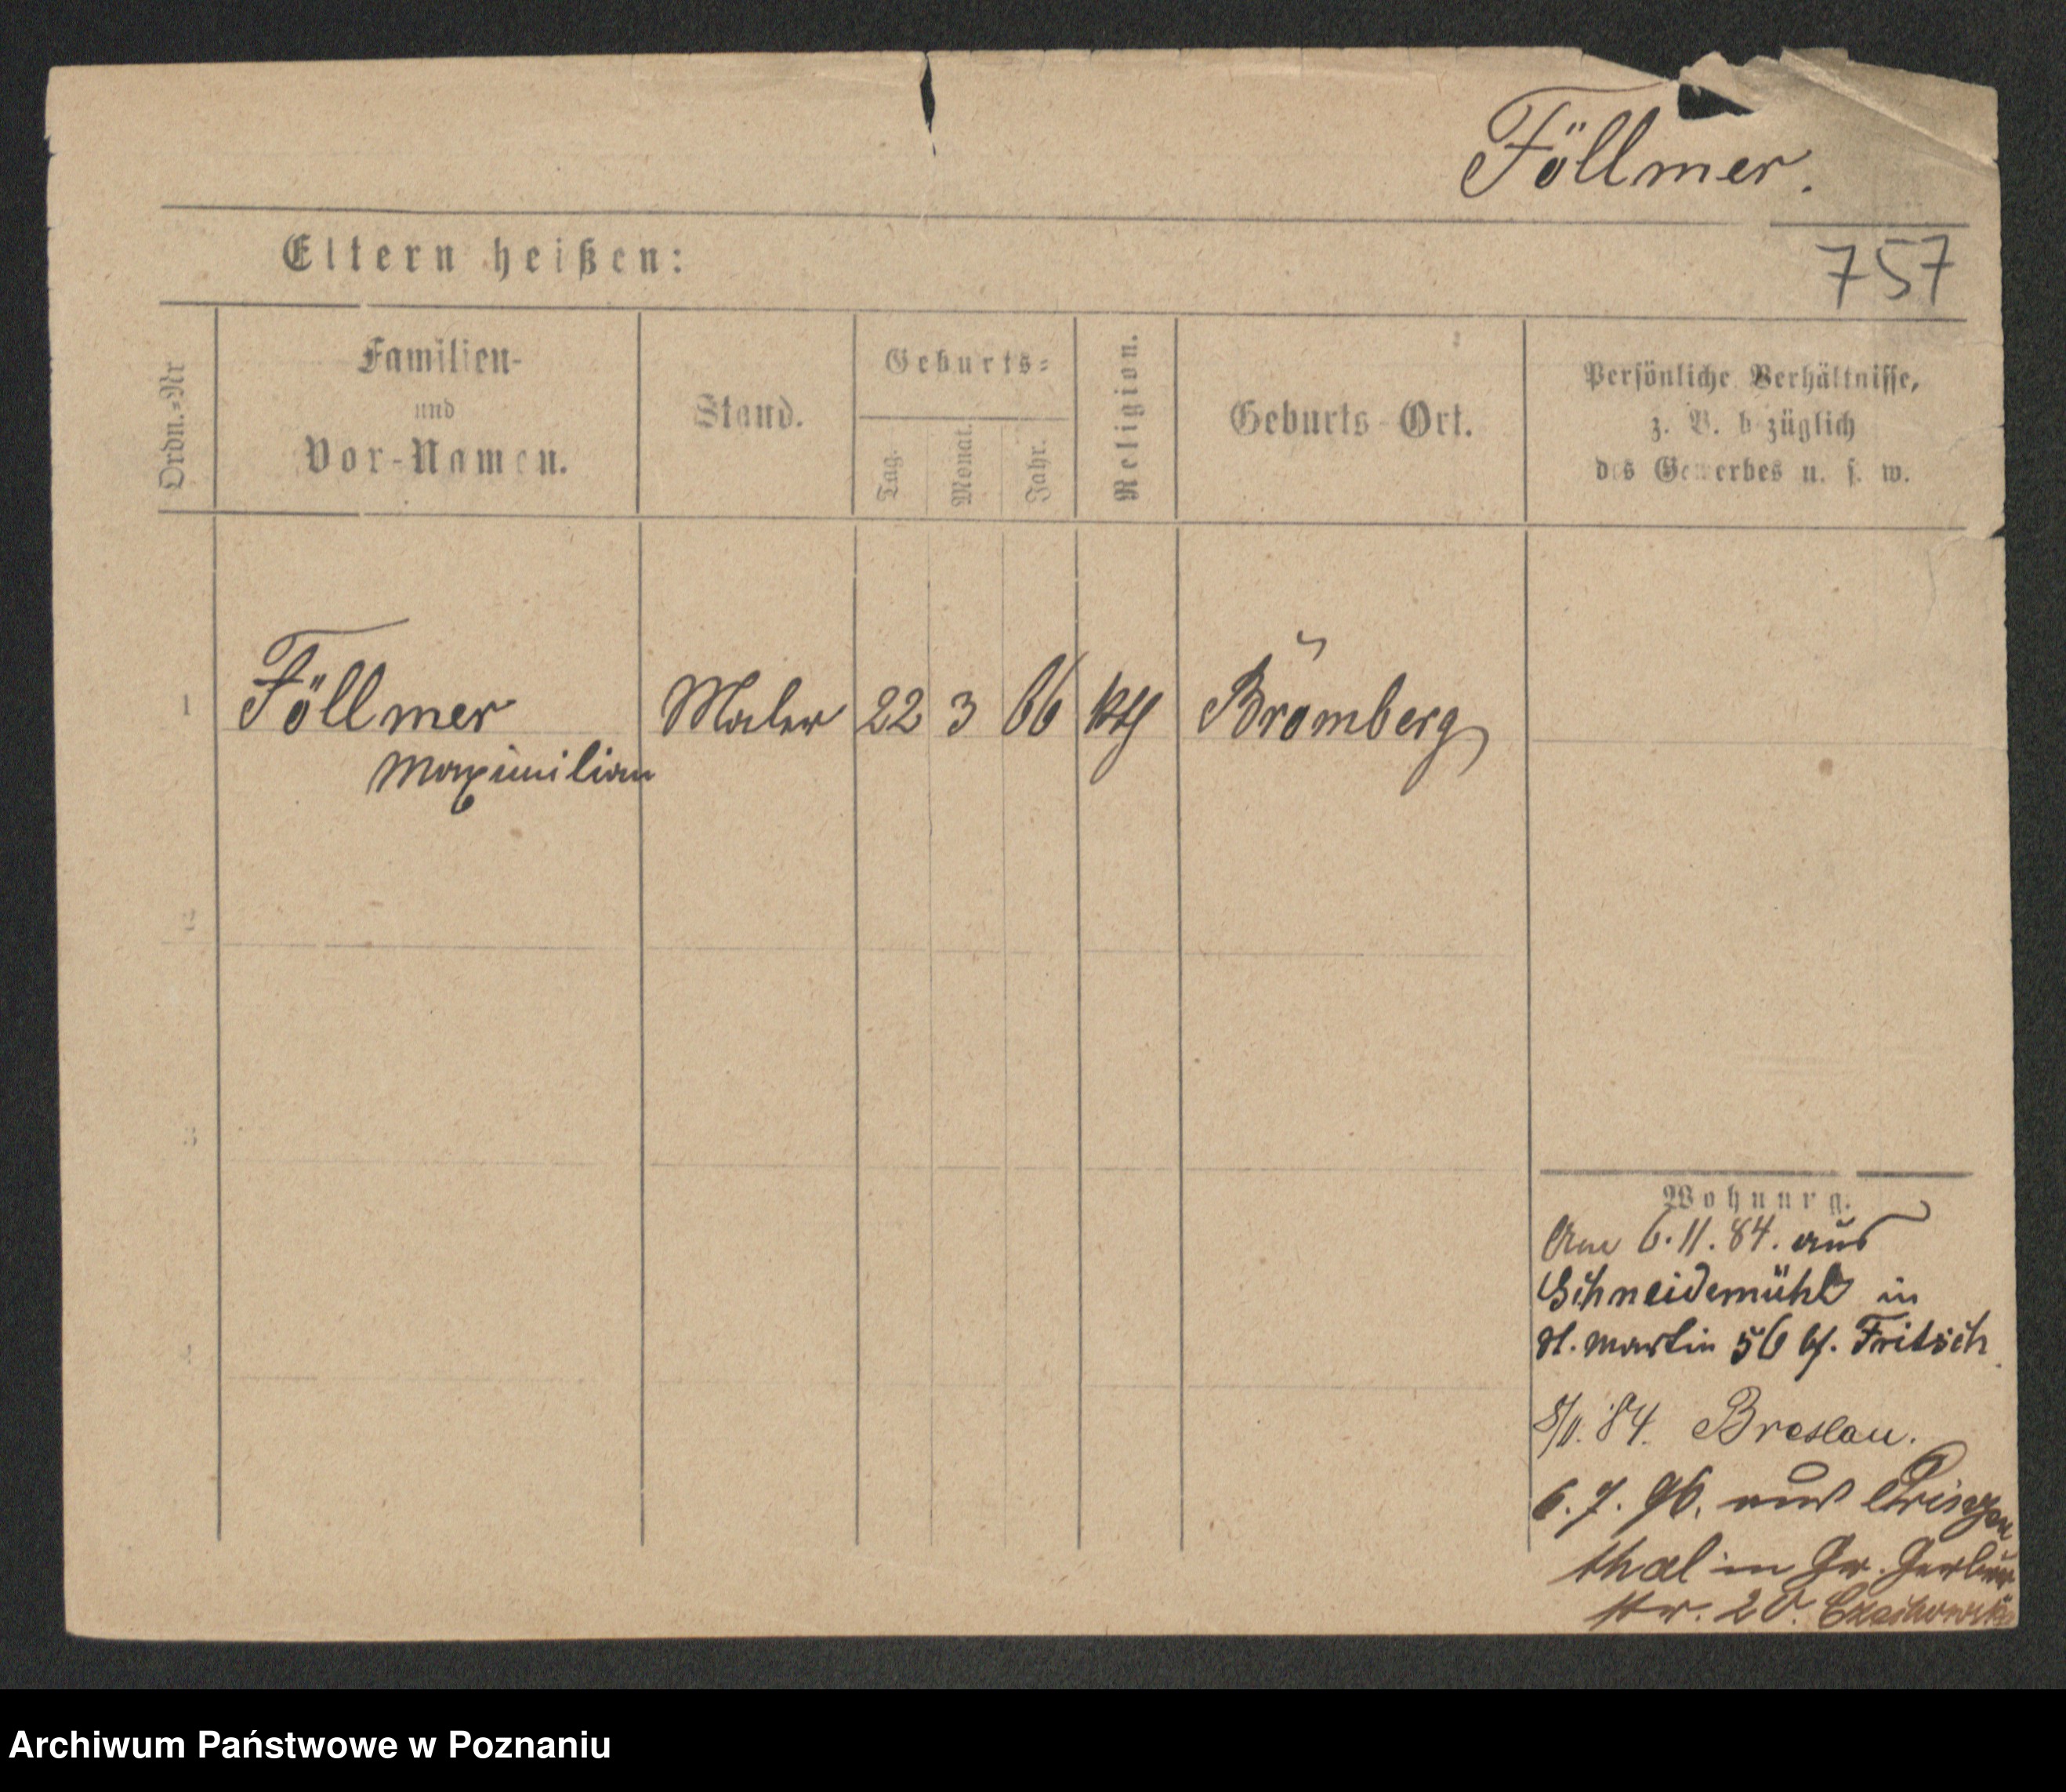 Föllmer.
Eltern heißen:
757
Ordn.=Nr
Familien-
und
Vor-Namen.
Stand.
Geburts=
Tag.
Monat.
Jahr.
Religion.
Geburts-Ort.
Persönliche Verhältnisse,
z. B. bezüglich
des Gewerbes u. s. w.
1
Föllmer
Maximilian
Maler
22
3
66
kth
Bromberg
2
3
4
Wohnung.
Am 6.11.84. aus
Schneidemühl in
St. Martin 56 bf. Fritsch
84. Breslau.
6. 7. 96. aus Prinzen
thal in Gr. Gerber
str. 20.
Archiwum Państwowe w Poznaniu